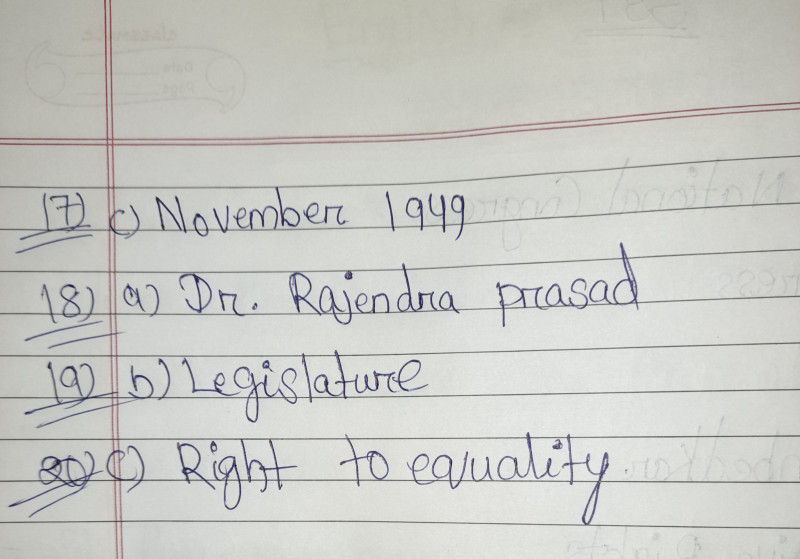 17) c) November 1949
18) a) Dr. Rajendra prasad
19) b) Legislature
20) c) Right to equality.